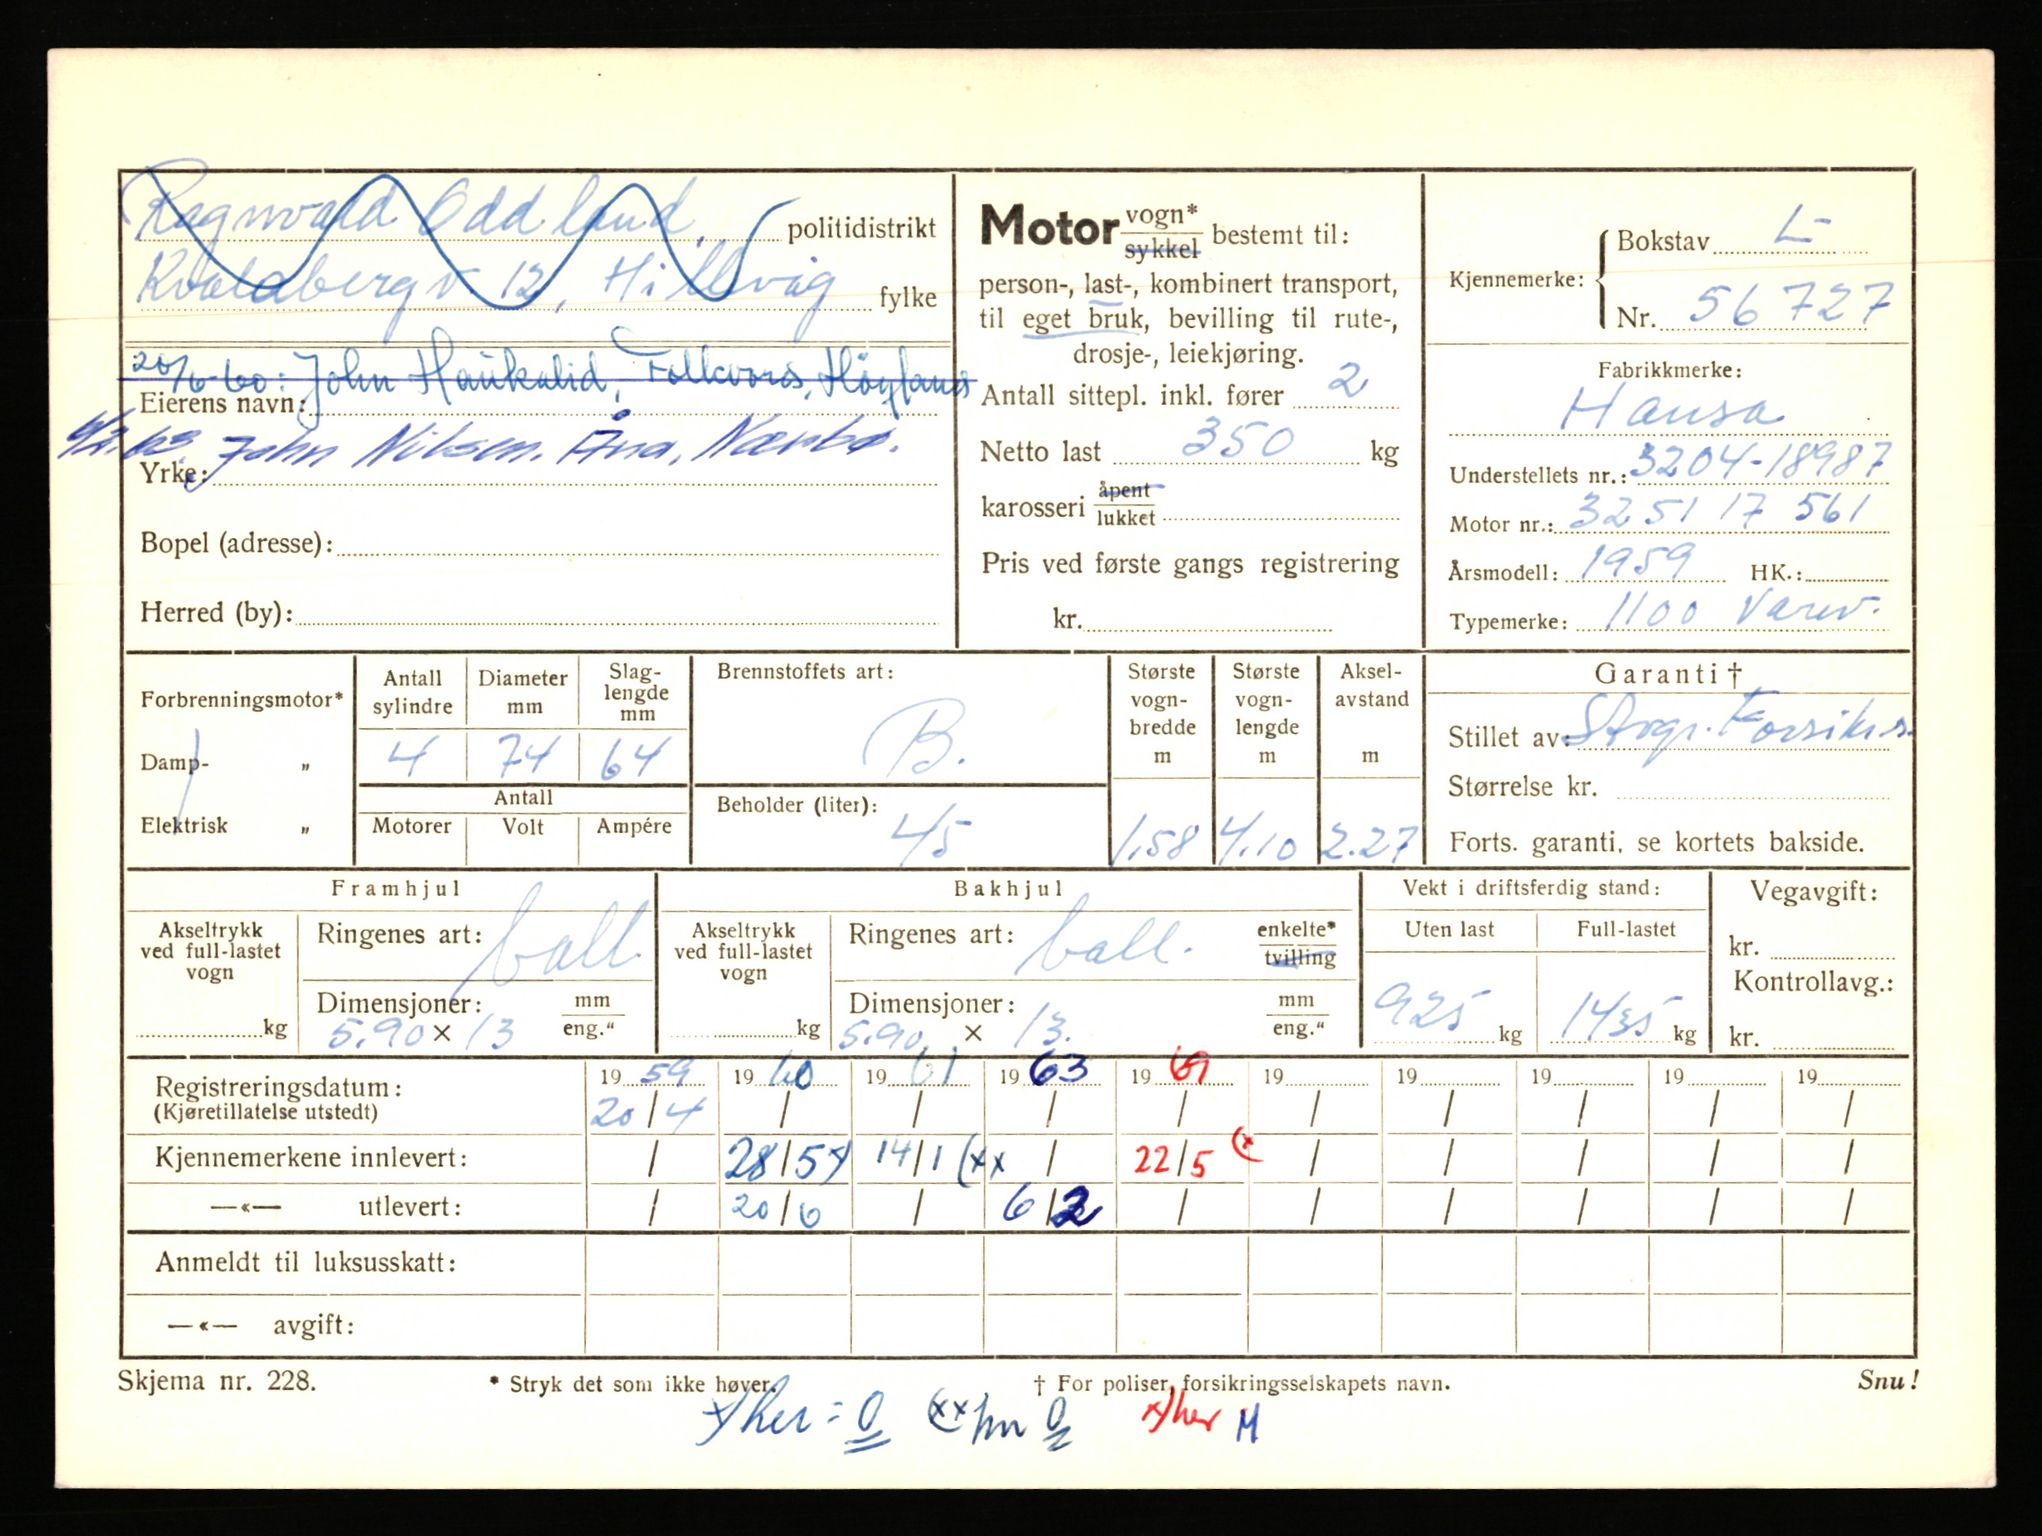 Ragnvald Oddland, politidistrikt
Kvaleberg v 12, Hillevåg fylke
20/6-60: John Haukalid, Folkvord, Høyland
Eierens navn:
6/2.63. John Nilsen. Åna, Nærbø.
Yrke:
Bopel (adresse):
Herred (by):
Motor vogn* sykkel bestemt til:
person-, last-, kombinert transport,
til eget bruk, bevilling til rute-,
drosje-, leiekjøring.
Antall sittepl. inkl. fører 2
Netto last 350 kg
karosseri åpent lukket
Pris ved første gangs registrering
kr.
Kjennemerke: Bokstav L-
Nr. 56727
Fabrikkmerke:
Hansa
Understellets nr.: 3204-18987
Motor nr.: 3251 17 561
Årsmodell: 1959 HK.:
Typemerke: 1100 Varev.
Forbrenningsmotor*
Damp- „
Elektrisk „
Antall sylindre Diameter mm Slag-lengde mm
4 74 64
Antall
Motorer Volt Ampére
Brennstoffets art:
B.
Beholder (liter):
45
Største vogn-bredde m
1.58
Største vogn-lengde m
4.10
Aksel-avstand m
2.27
Garanti †
Stillet av: Stvgr. Forsikr.s.
Størrelse kr.
Forts. garanti, se kortets bakside.
Framhjul
Akseltrykk ved full-lastet vogn
kg
Ringenes art: ball.
Dimensjoner: mm
5.90 × 13 eng."
Bakhjul
Akseltrykk ved full-lastet vogn
kg
Ringenes art: ball. enkelte* tvilling
Dimensjoner: mm
5.90 × 13. eng."
Vekt i driftsferdig stand:
Uten last Full-lastet
925 kg 1435 kg
Vegavgift:
kr.
Kontrollavg.:
kr.
Registreringsdatum: 19 59 19 60 19 61 19 63 19 69 19 19 19 19 19
(Kjøretillatelse utstedt) 20/4 / / / / / / / / /
Kjennemerkene innlevert: / 28/5 x) 14/1 (xx / 22/5 (x / / / / /
—«— utlevert: / 20/6 / 6/2 / / / / / /
Anmeldt til luksusskatt:
—«— avgift:
Skjema nr. 228. * Stryk det som ikke høver. † For poliser, forsikringsselskapets navn. Snu!
x) her = 0 (xx hn 0 x) her M